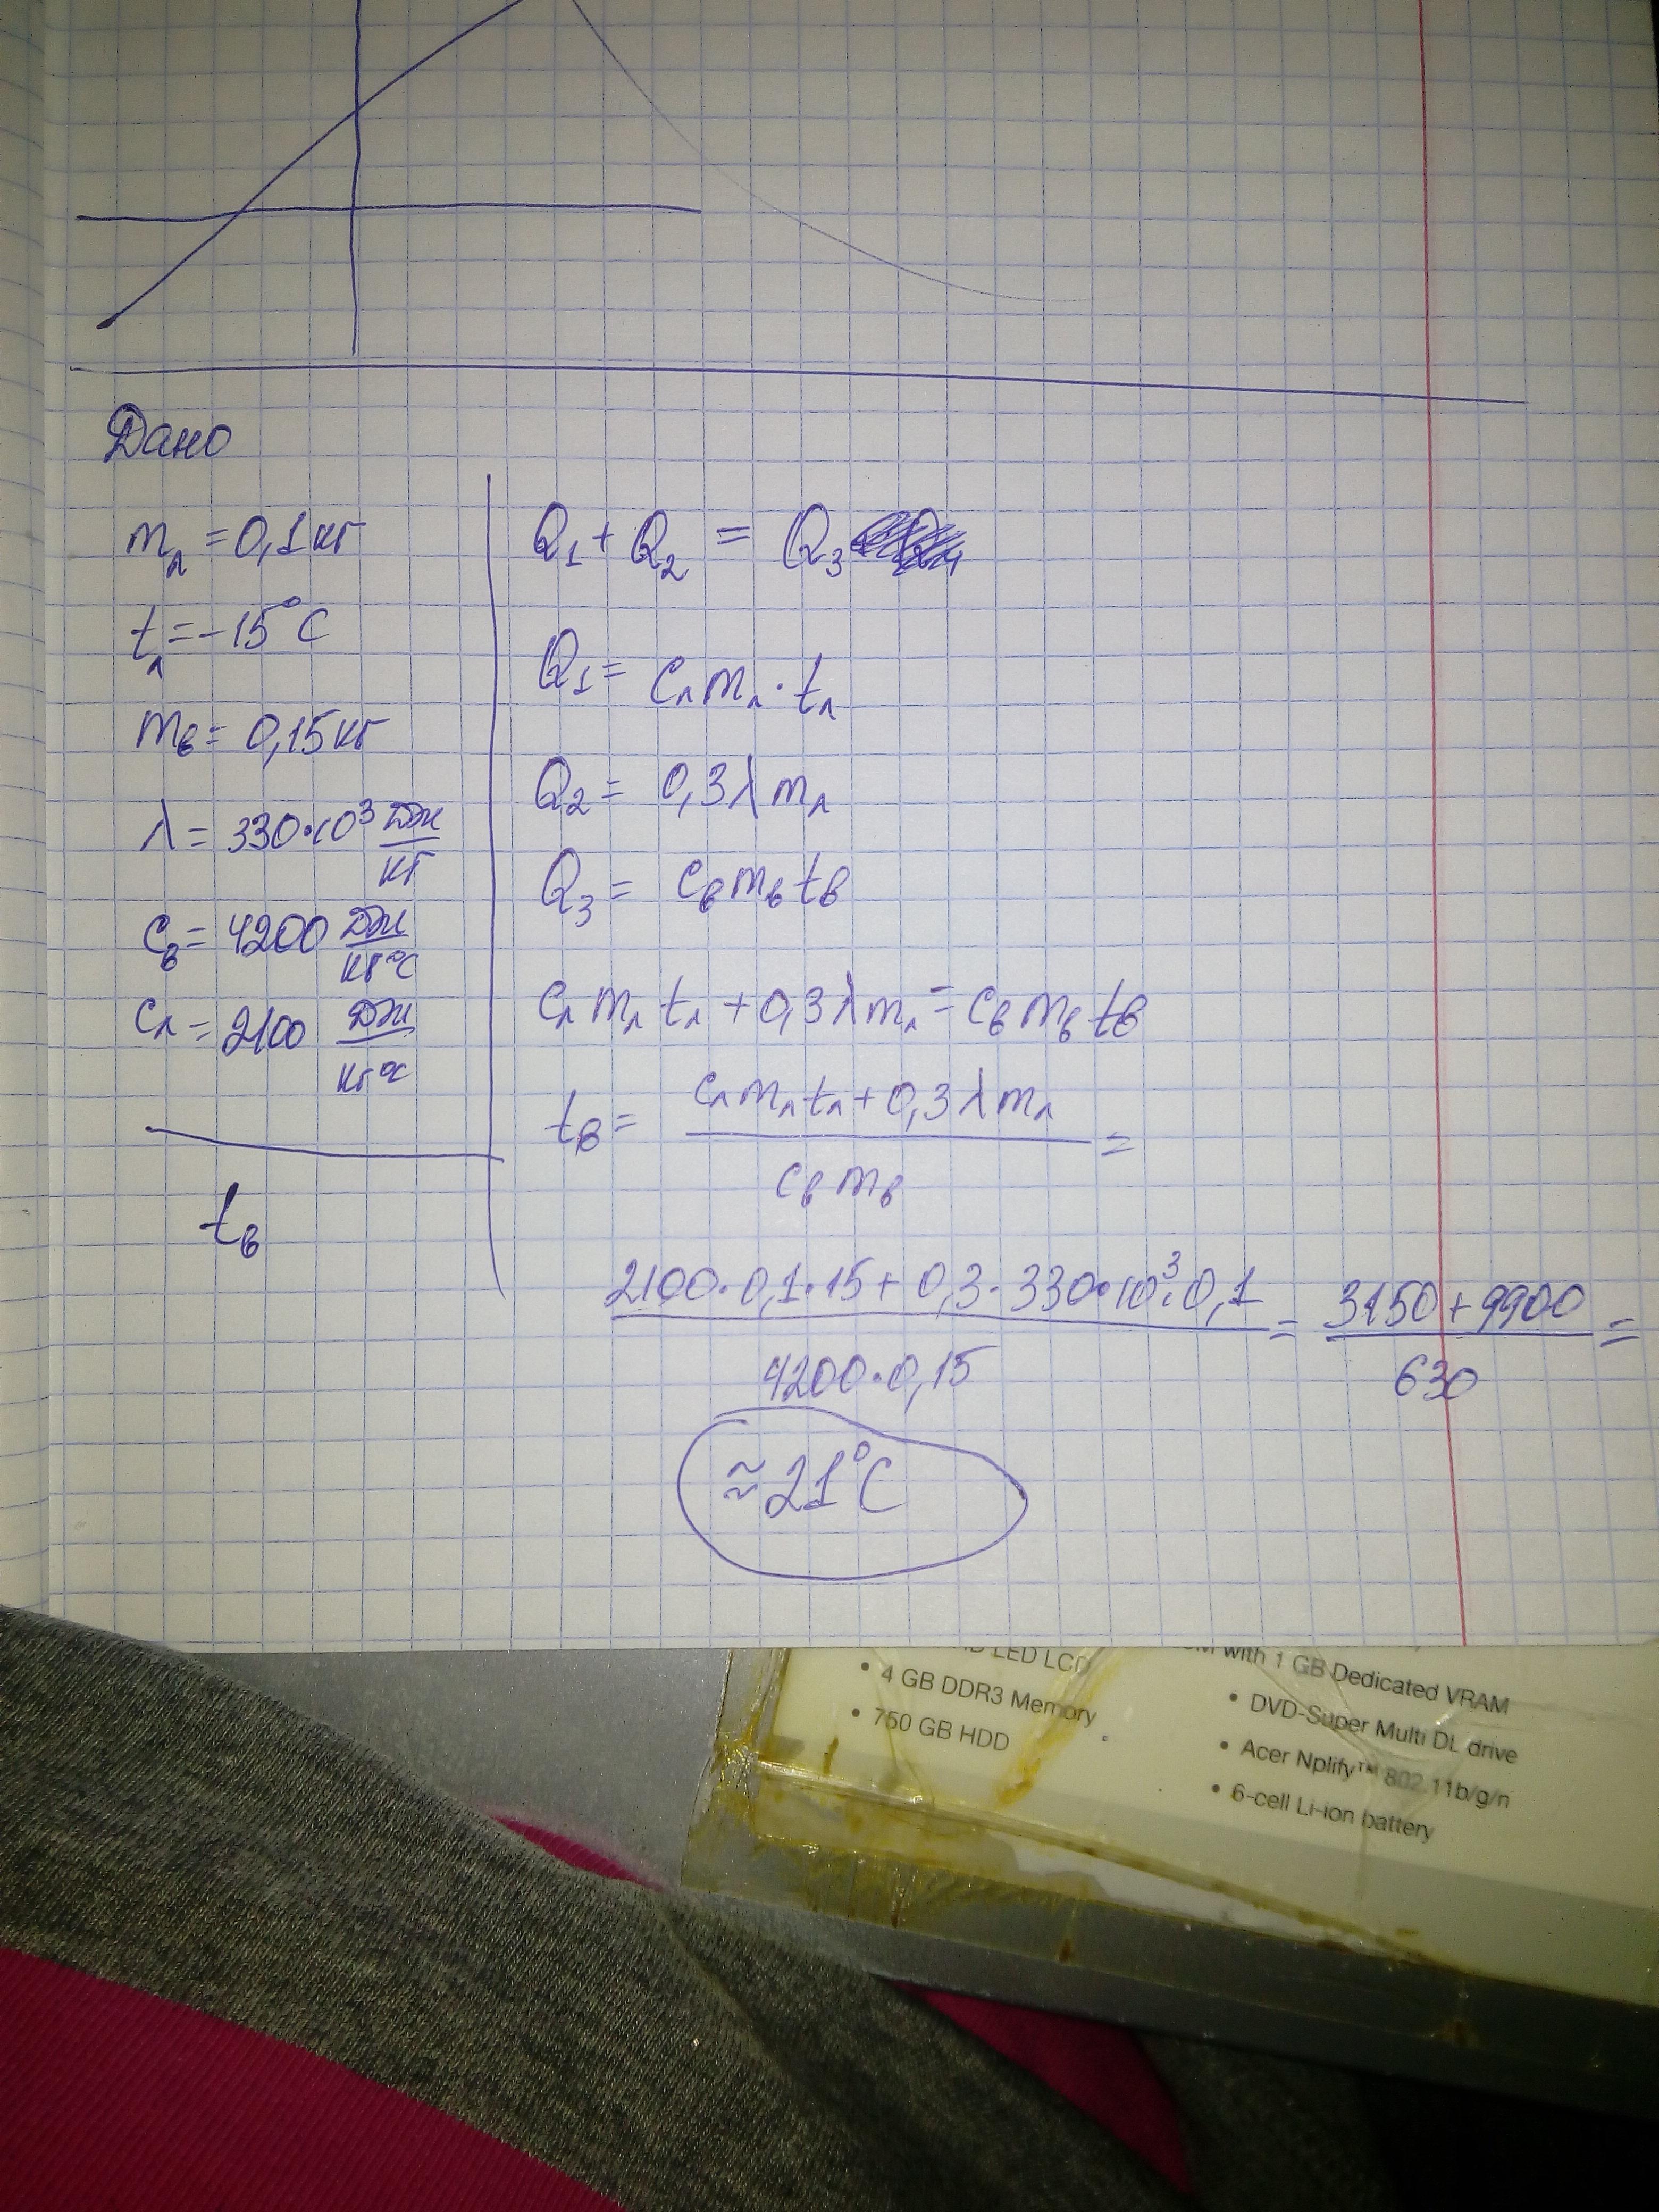 Дано
mл = 0,1 кг
tл = -15°C
mв = 0,15 кг
λ = 330·10³ Дж/кг
cв = 4200 Дж/кг°C
cл = 2100 Дж/кг°C
tв
Q₁ + Q₂ = Q₃
Q₁ = cл mл · tл
Q₂ = 0,3 λ mл
Q₃ = cв mв tв
cл mл tл + 0,3 λ mл = cв mв tв
tв = (cл mл tл + 0,3 λ mл) / (cв mв) =
(2100·0,1·15 + 0,3·330·10³·0,1) / (4200·0,15) = (3150 + 9900) / 630 =
≈ 21°C
LED LCD
• 4 GB DDR3 Memory
• 750 GB HDD
with 1 GB Dedicated VRAM
• DVD-Super Multi DL drive
• Acer Nplify™ 802.11b/g/n
• 6-cell Li-ion battery